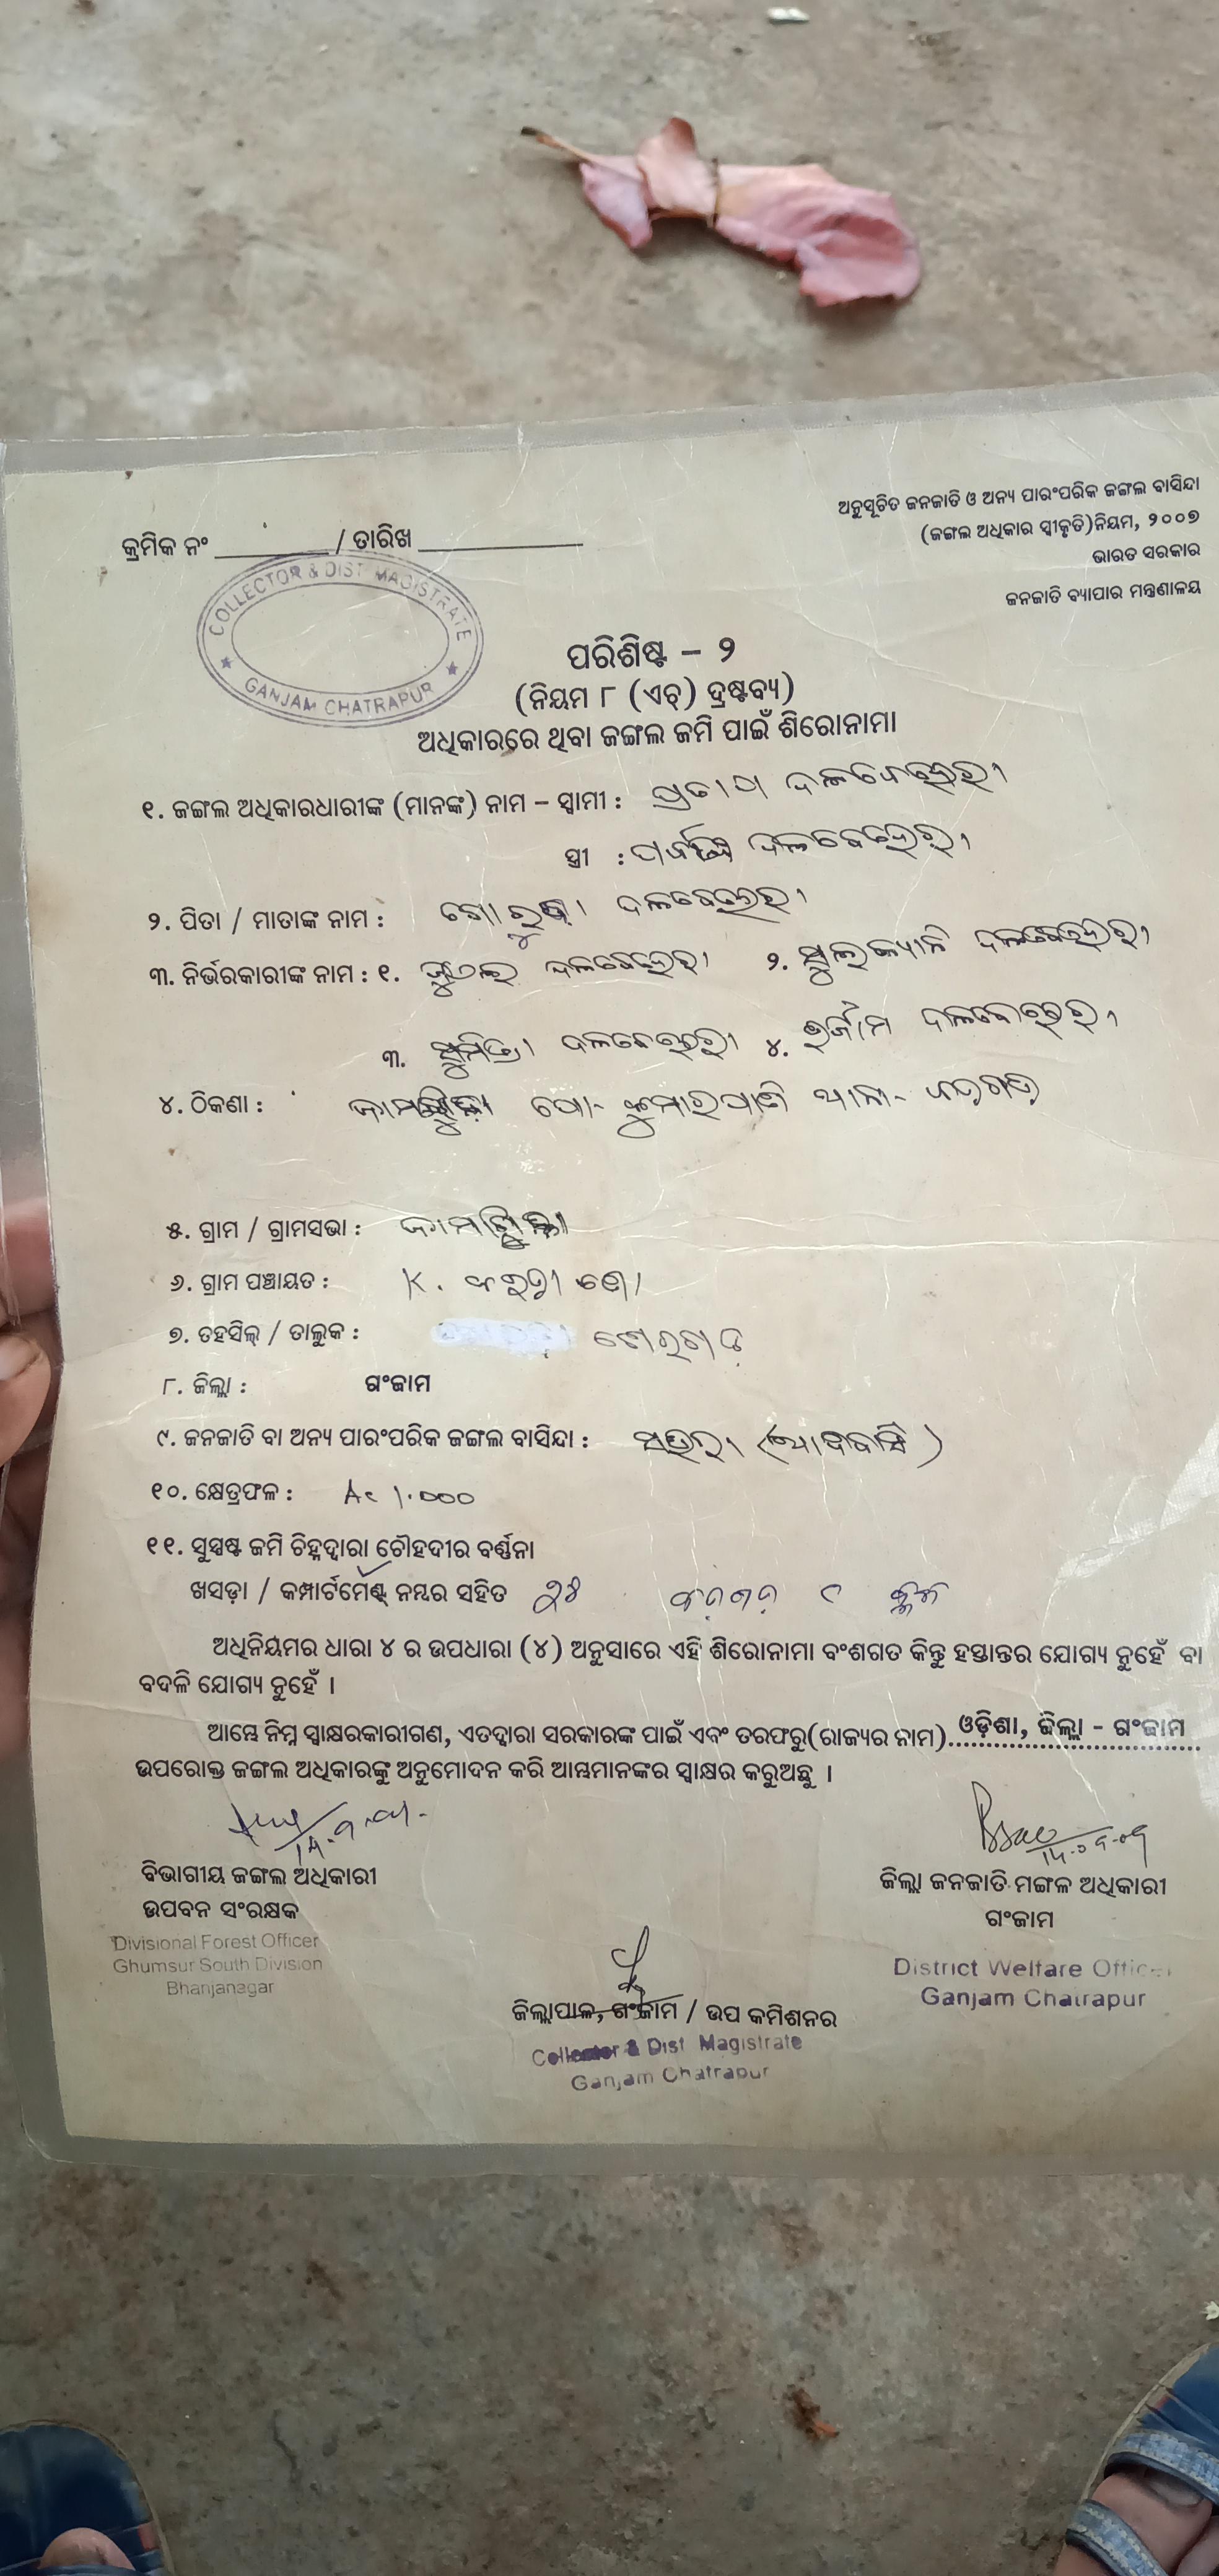 ଅନୁସୂଚିତ ଜନଜାତି ଓ ଅନ୍ୟ ପାରଂପରିକ ଜଙ୍ଗଲ ବାସିନ୍ଦା
(ଜଙ୍ଗଲ ଅଧିକାର ସ୍ୱୀକୃତି)ନିୟମ, ୨୦୦୭
ଭାରତ ସରକାର
ଜନଜାତି ବ୍ୟାପାର ମନ୍ତ୍ରଣାଳୟ
କ୍ରମିକ ନଂ ________ / ତାରିଖ ____________
COLLECTOR & DIST MAGISTRATE
GANJAM CHATRAPUR
ପରିଶିଷ୍ଟ – ୨
(ନିୟମ ୮ (ଏଚ୍) ଦ୍ରଷ୍ଟବ୍ୟ)
ଅଧିକାରରେ ଥିବା ଜଙ୍ଗଲ ଜମି ପାଇଁ ଶିରୋନାମା
୧. ଜଙ୍ଗଲ ଅଧିକାରଧାରୀଙ୍କ (ମାନଙ୍କ) ନାମ – ସ୍ୱାମୀ : ପ୍ରତାପ ଦଳବେହେରା
ସ୍ତ୍ରୀ : ଦଳବେହେରା
୨. ପିତା / ମାତାଙ୍କ ନାମ : ଦଳବେହେରା
୩. ନିର୍ଭରକାରୀଙ୍କ ନାମ : ୧. ଦଳବେହେରା ୨. ଦଳବେହେରା
୩. ସୁମିତ୍ରା ଦଳବେହେରା ୪. ଦଳବେହେରା
୪. ଠିକଣା : ପୋ- ଥାନା-
୫. ଗ୍ରାମ / ଗ୍ରାମସଭା :
୬. ଗ୍ରାମ ପଞ୍ଚାୟତ : K.
୭. ତହସିଲ୍ / ତାଲୁକ : ଶେରଗଡ଼
୮. ଜିଲ୍ଲା : ଗଂଜାମ
୯. ଜନଜାତି ବା ଅନ୍ୟ ପାରଂପରିକ ଜଙ୍ଗଲ ବାସିନ୍ଦା : ସଉରା (ଆଦିବାସି)
୧୦. କ୍ଷେତ୍ରଫଳ : Ac 1.000
୧୧. ସୁସ୍ପଷ୍ଟ ଜମି ଚିହ୍ନଦ୍ୱାରା ଚୌହଦୀର ବର୍ଣ୍ଣନା
ଖସଡ଼ା / କମ୍ପାର୍ଟମେଣ୍ଟ୍ ନମ୍ବର ସହିତ
ଅଧିନିୟମର ଧାରା ୪ ର ଉପଧାରା (୪) ଅନୁସାରେ ଏହି ଶିରୋନାମା ବଂଶଗତ କିନ୍ତୁ ହସ୍ତାନ୍ତର ଯୋଗ୍ୟ ନୁହେଁ ବା
ବଦଳି ଯୋଗ୍ୟ ନୁହେଁ ।
ଆମ୍ଭେ ନିମ୍ନ ସ୍ୱାକ୍ଷରକାରୀଗଣ, ଏତଦ୍ୱାରା ସରକାରଙ୍କ ପାଇଁ ଏବଂ ତରଫରୁ(ରାଜ୍ୟର ନାମ) ଓଡ଼ିଶା, ଜିଲ୍ଲା - ଗଂଜାମ
ଉପରୋକ୍ତ ଜଙ୍ଗଲ ଅଧିକାରଙ୍କୁ ଅନୁମୋଦନ କରି ଆମ୍ଭମାନଙ୍କର ସ୍ୱାକ୍ଷର କରୁଅଛୁ ।
ବିଭାଗୀୟ ଜଙ୍ଗଲ ଅଧିକାରୀ
ଉପବନ ସଂରକ୍ଷକ
Divisional Forest Officer
Ghumsur South Division
Bhanjanagar
ଜିଲ୍ଲା ଜନଜାତି ମଙ୍ଗଳ ଅଧିକାରୀ
ଗଂଜାମ
District Welfare Officer
Ganjam Chatrapur
ଜିଲ୍ଲାପାଳ, ଗଂଜାମ / ଉପ କମିଶନର
Collector & Dist Magistrate
Ganjam Chatrapur